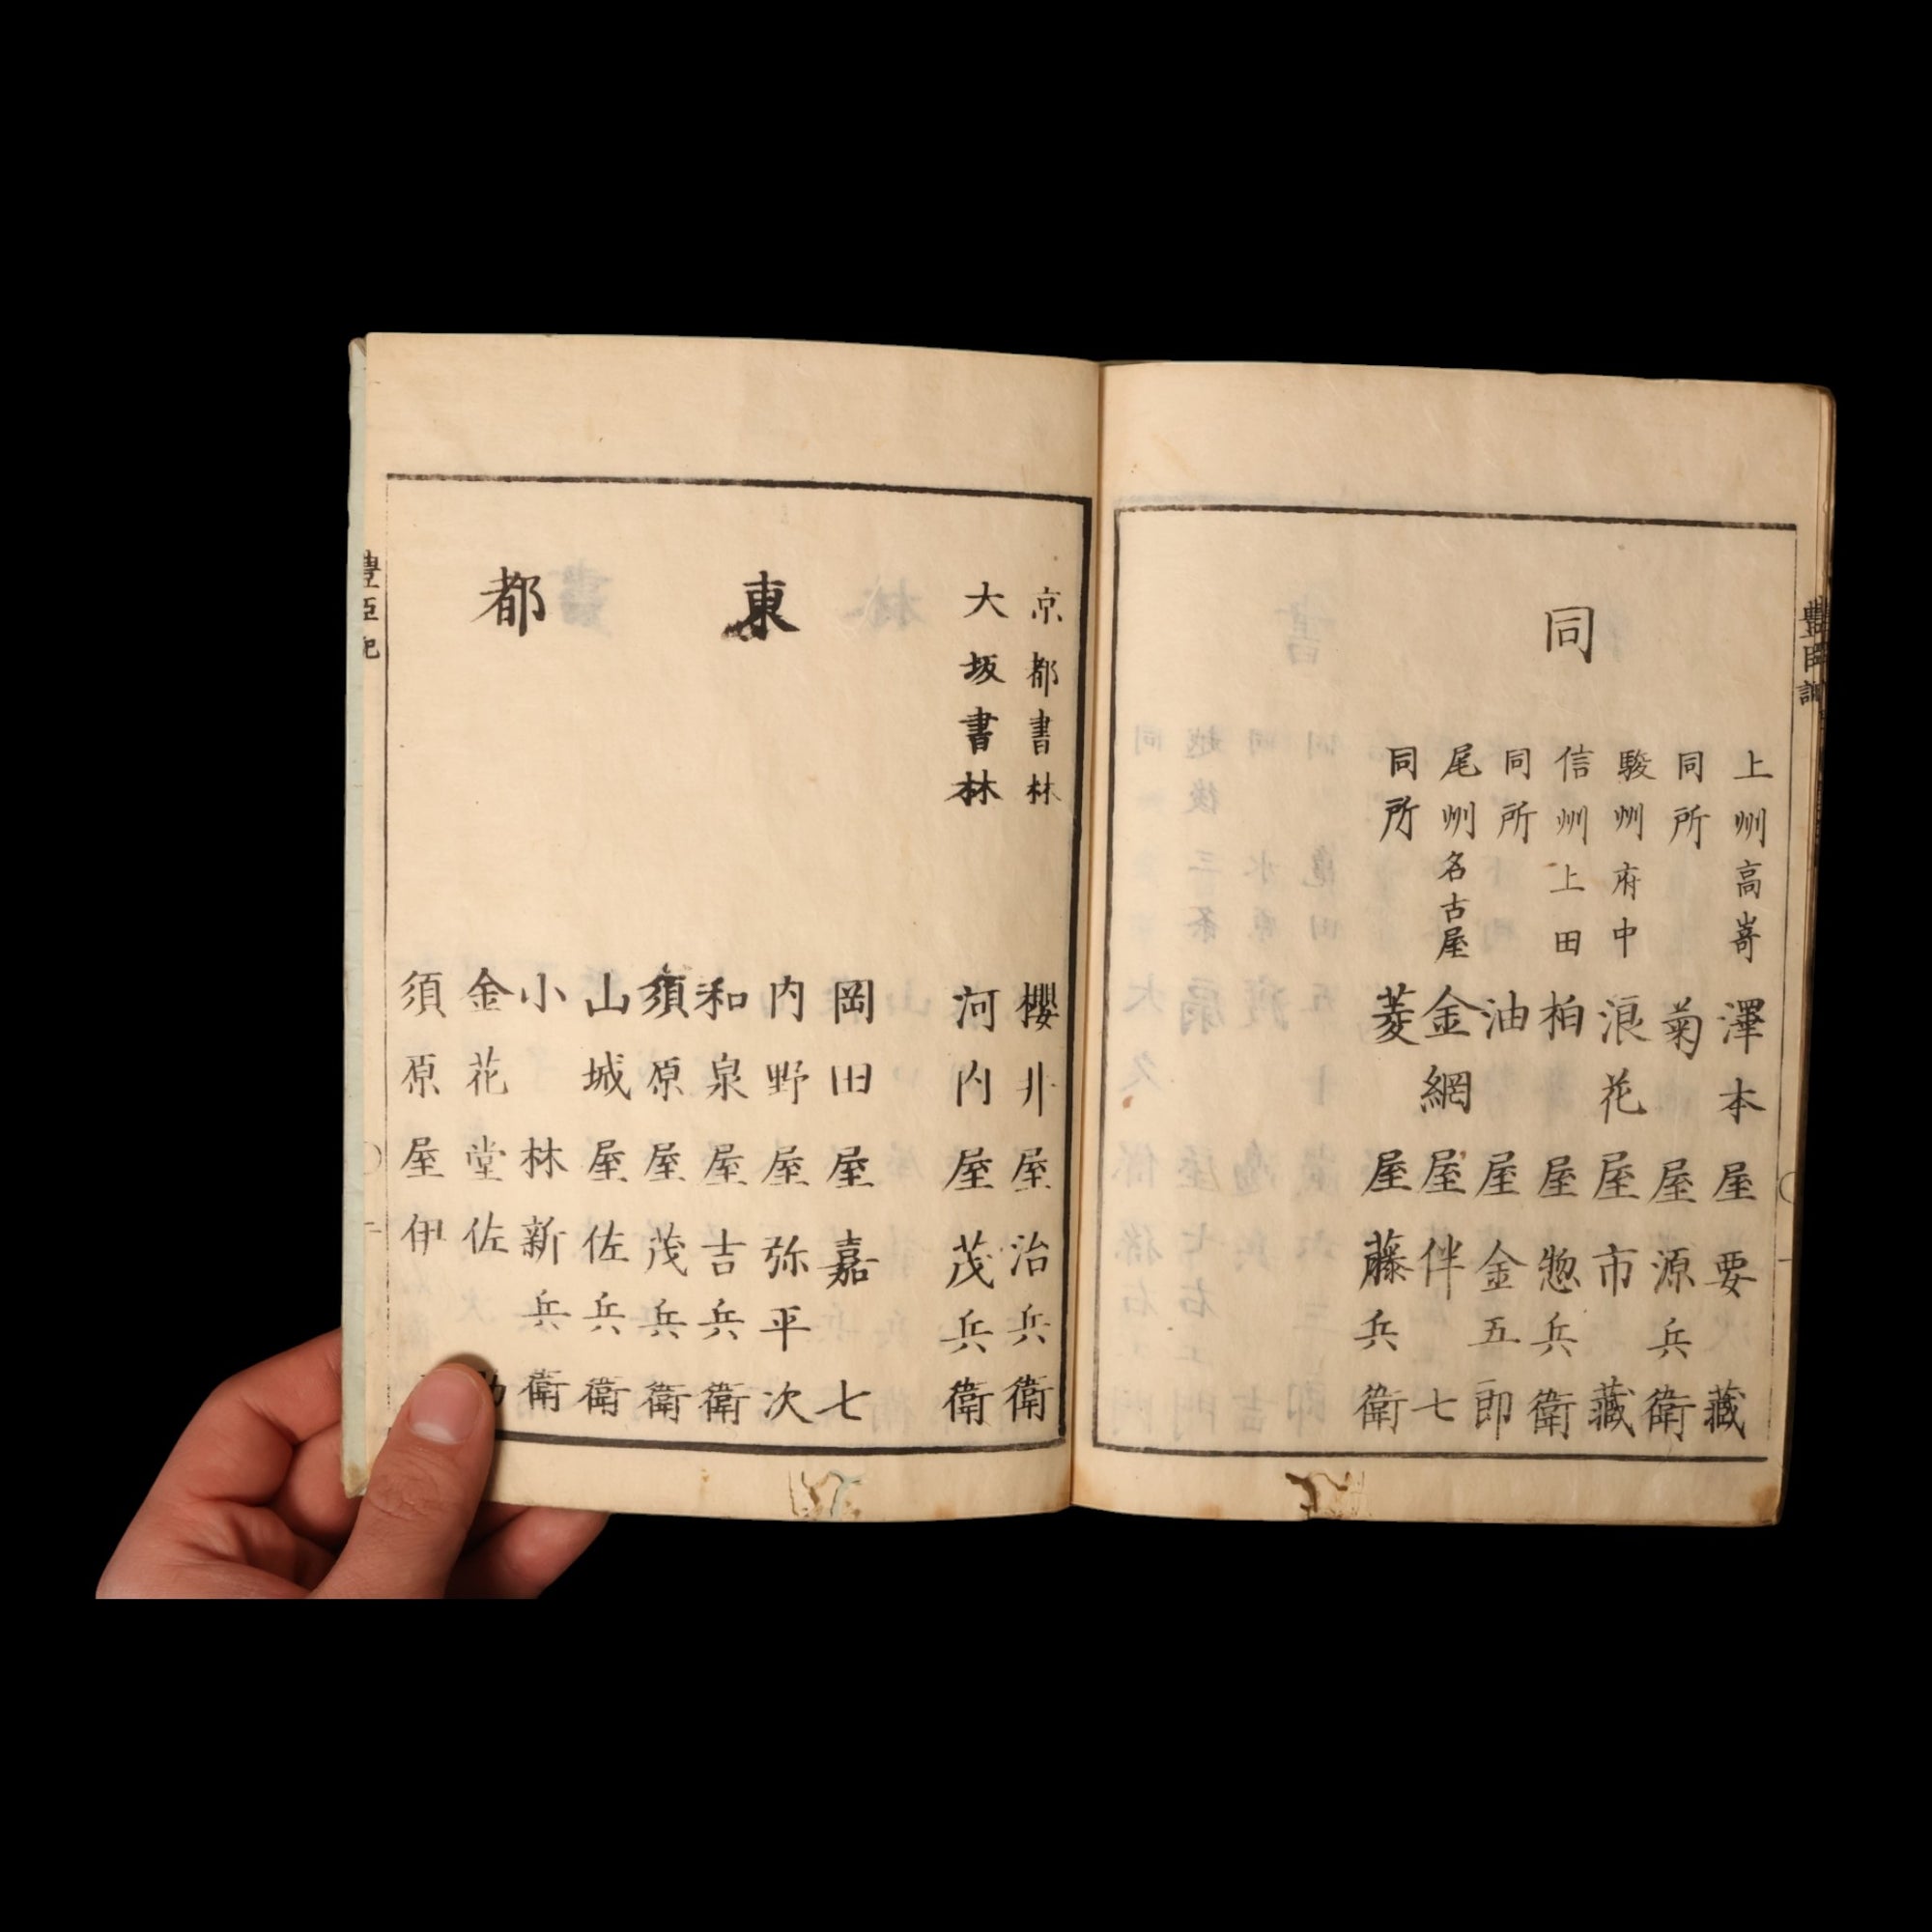 同
上州高嵜 澤本屋要藏
同所 菊屋源兵衛
駿州府中 浪花屋市藏
信州上田 柏屋惣兵衛
同所 油屋金五郎
尾州名古屋 金網屋伴七
同所 菱屋藤兵衛
京都書林 櫻井屋治兵衛
大坂書林 河内屋茂兵衛
東都
岡田屋嘉七
内野屋弥平次
和泉屋吉兵衛
須原屋茂兵衛
山城屋佐兵衛
小林新兵衛
金花堂佐
須原屋伊